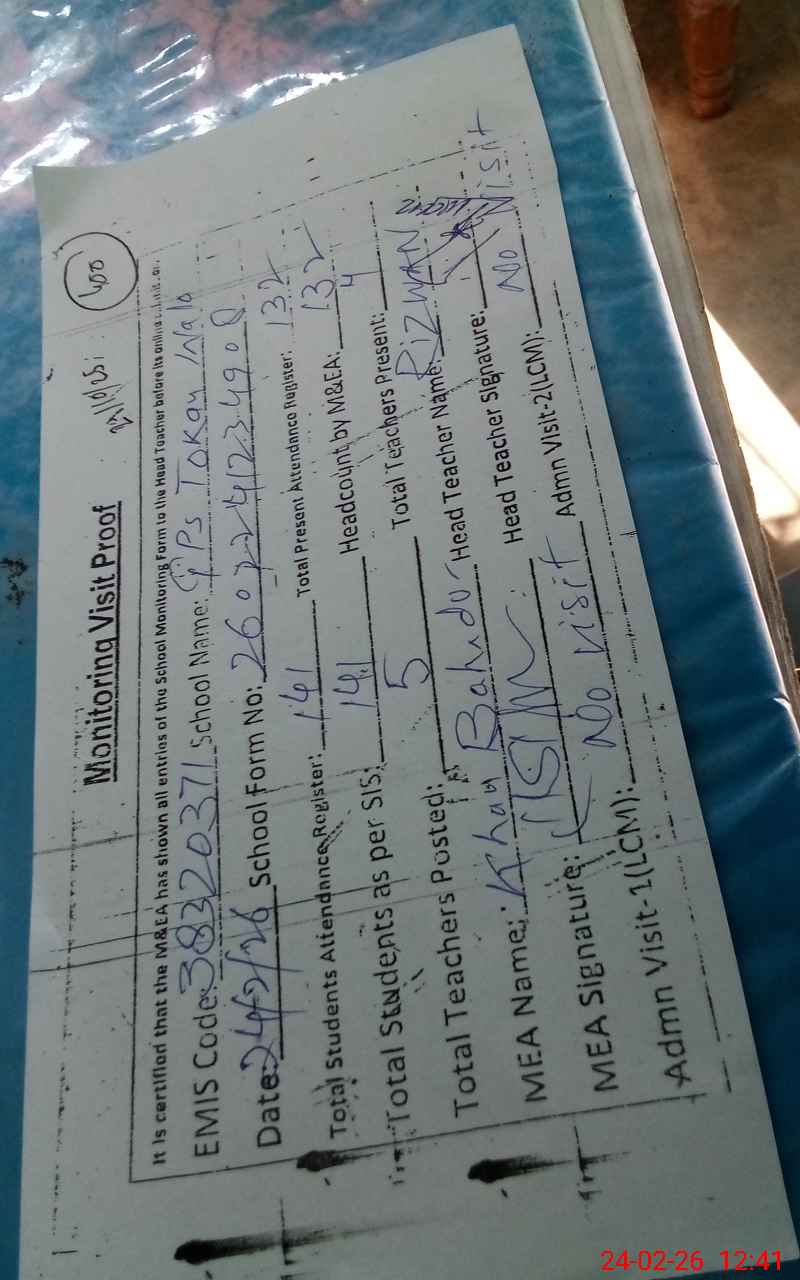 Monitoring Visit Proof
400
It is certified that the M&EA has shown all entries of the School Monitoring Form to the Head Teacher before its online
EMIS Code: 38320371 School Name: GPS Tokay Wala
Date: 24/2/26 School Form No:
Total Students Attendance Register: 141 Total Present Attendance Register: 132
Total Students as per SIS: 141 Headcount by M&EA: 132
Total Teachers Posted: 5 Total Teachers Present: 4
MEA Name: Khan Bahadur Head Teacher Name: RIZWAN
MEA Signature: Head Teacher Signature:
Admn Visit-1(LCM): No visit Admn Visit-2(LCM): No Visit
24-02-26 12:41